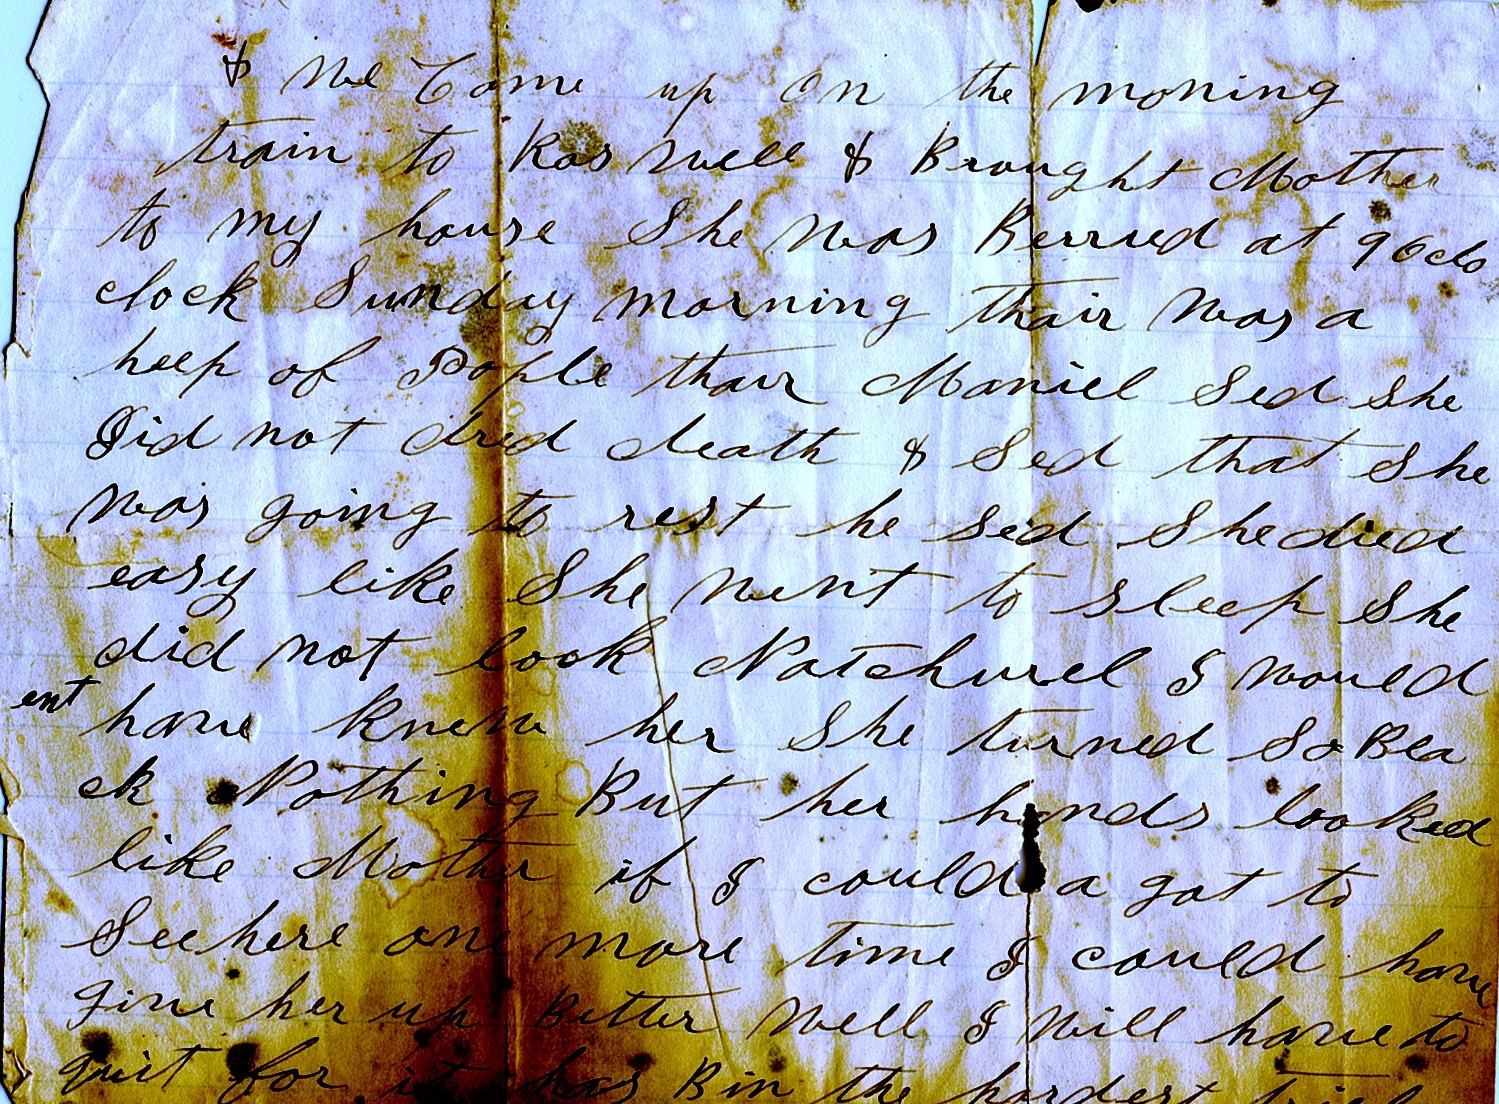 & We Come up on the moning
train to Roswell & Brought Mother
to my house She was Berried at 9 oclo
clock Sunday morning thair was a
heep of Pople thair Maniel Sed She
Did not dred death & Sed that She
was going to rest he sed She died
easy like She went to sleep She
did not look Natchurel I would
ent have knew her She turned So Bla
ck Nothing But her hands looked
like Mother if I could a got to
See here one more time I could have
give her up Better Well I Will have to
quit for it has Bin the hardest